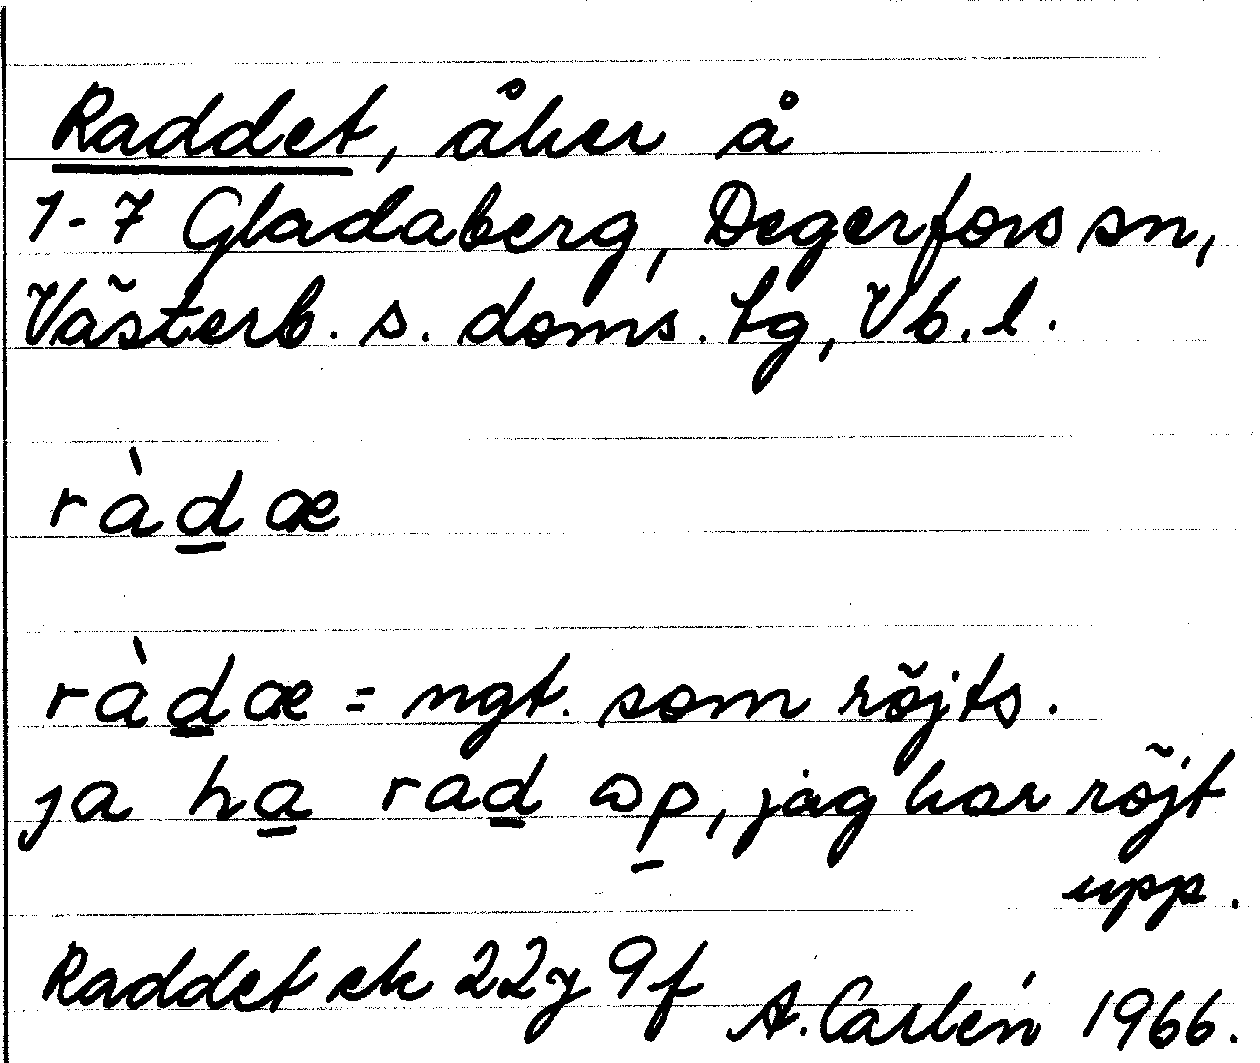 Raddet, åker å
1-7 Gladaberg, Degerfors sn,
Västerb. s. doms. tg, Vb. l.
ràdæ
ràdæ = ngt. som röjts.
ja ha rad ɷp, jag har röjt
upp.
Raddet ek 22 y 9 f A. Carlén 1966.